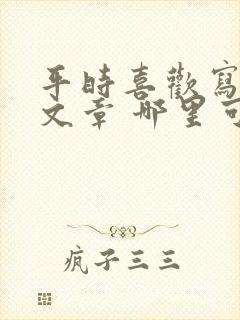 平時喜歡寫
文章哪里可
疯子三三